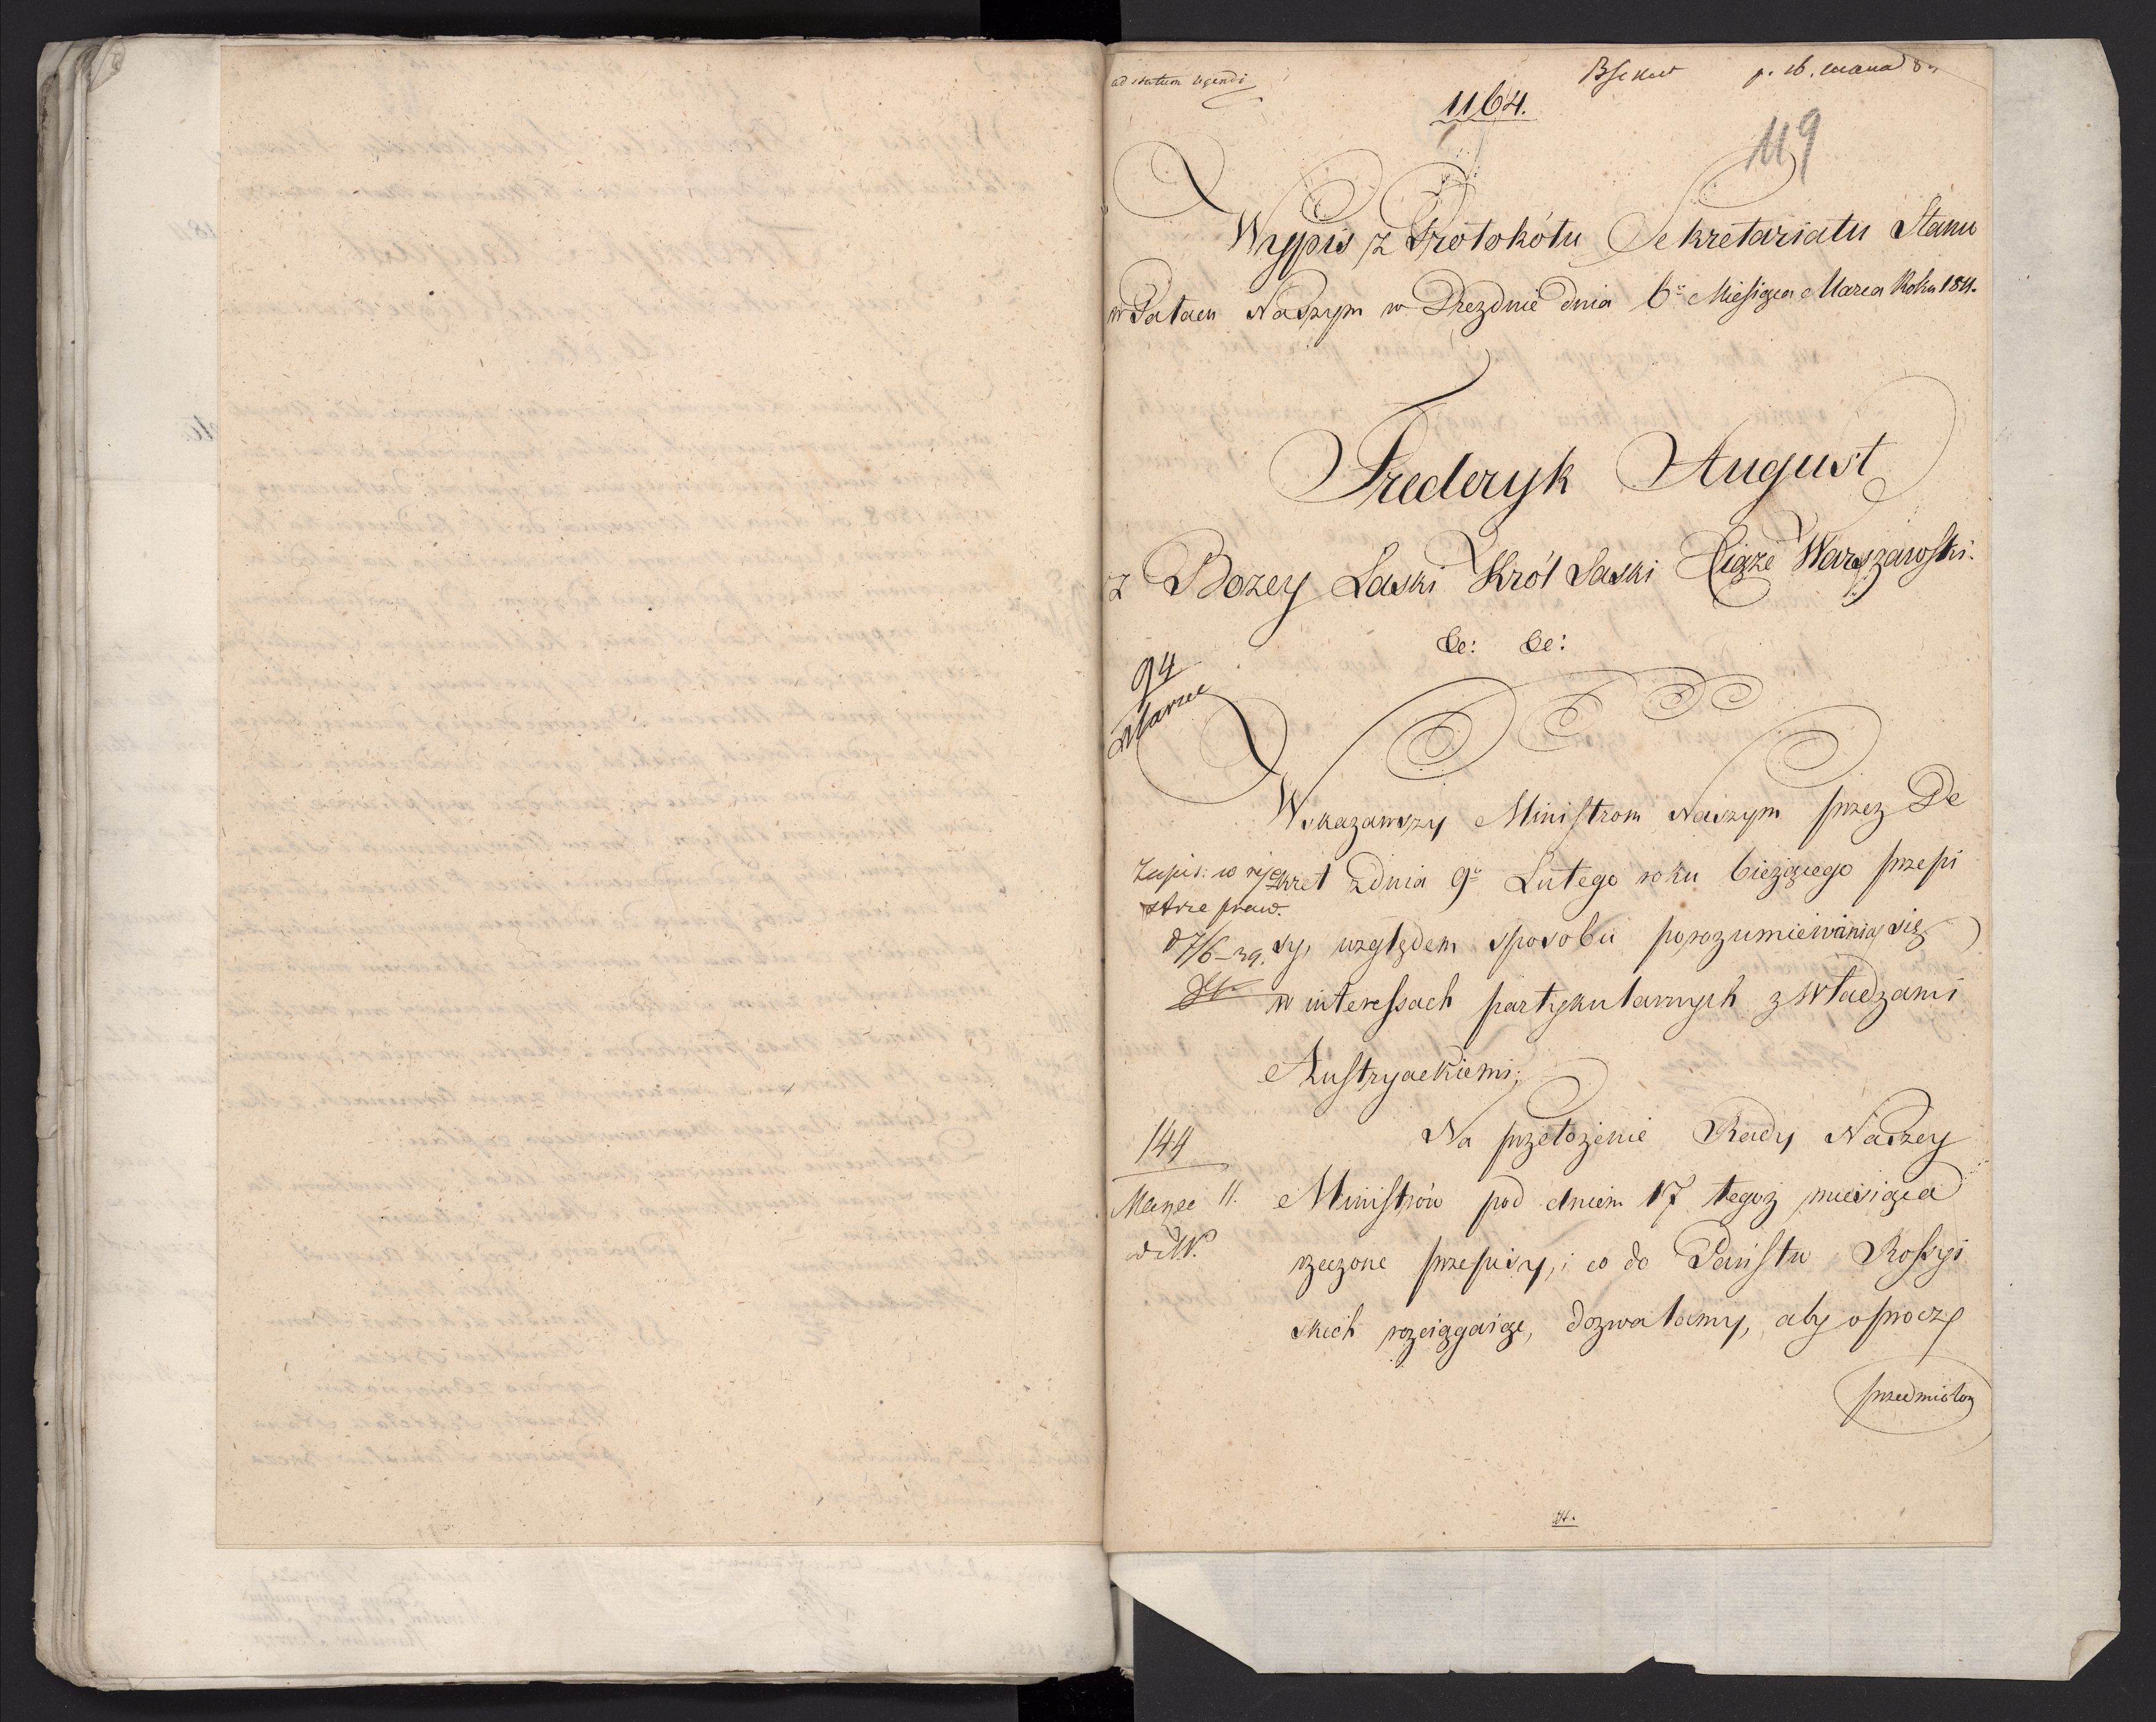 ad statum legendi
1164.
119
Wypis z Protokółu Sekretariatu Stanu
w Pałacu Naszym w Dreznie dnia 6º Miesiąca Marca Roku 1811.
Frederyk August
z Bożey Łaski Król Saski Xiąże Warszawski.
&c: &c:
94
Marzec
Wskazawszy Ministrom Naszym przez De
Zapis: w reje
kret z dnia 9º Lutego roku bieżącego przepi
strze praw.
d 7/6–39.
sy, względem sposobu porozumiewania się
w interessach partykularnych z Władzami
Austryackiemi;
Na przełożenie Rady Naszey
144
Marzec 11.
Ministrów pod dniem 17 tegoż miesiąca
rzeczone przepisy, i co do Państw Rossyi
skich rozciągaiąc, dozwalamy, aby oprocz
przedmiotow